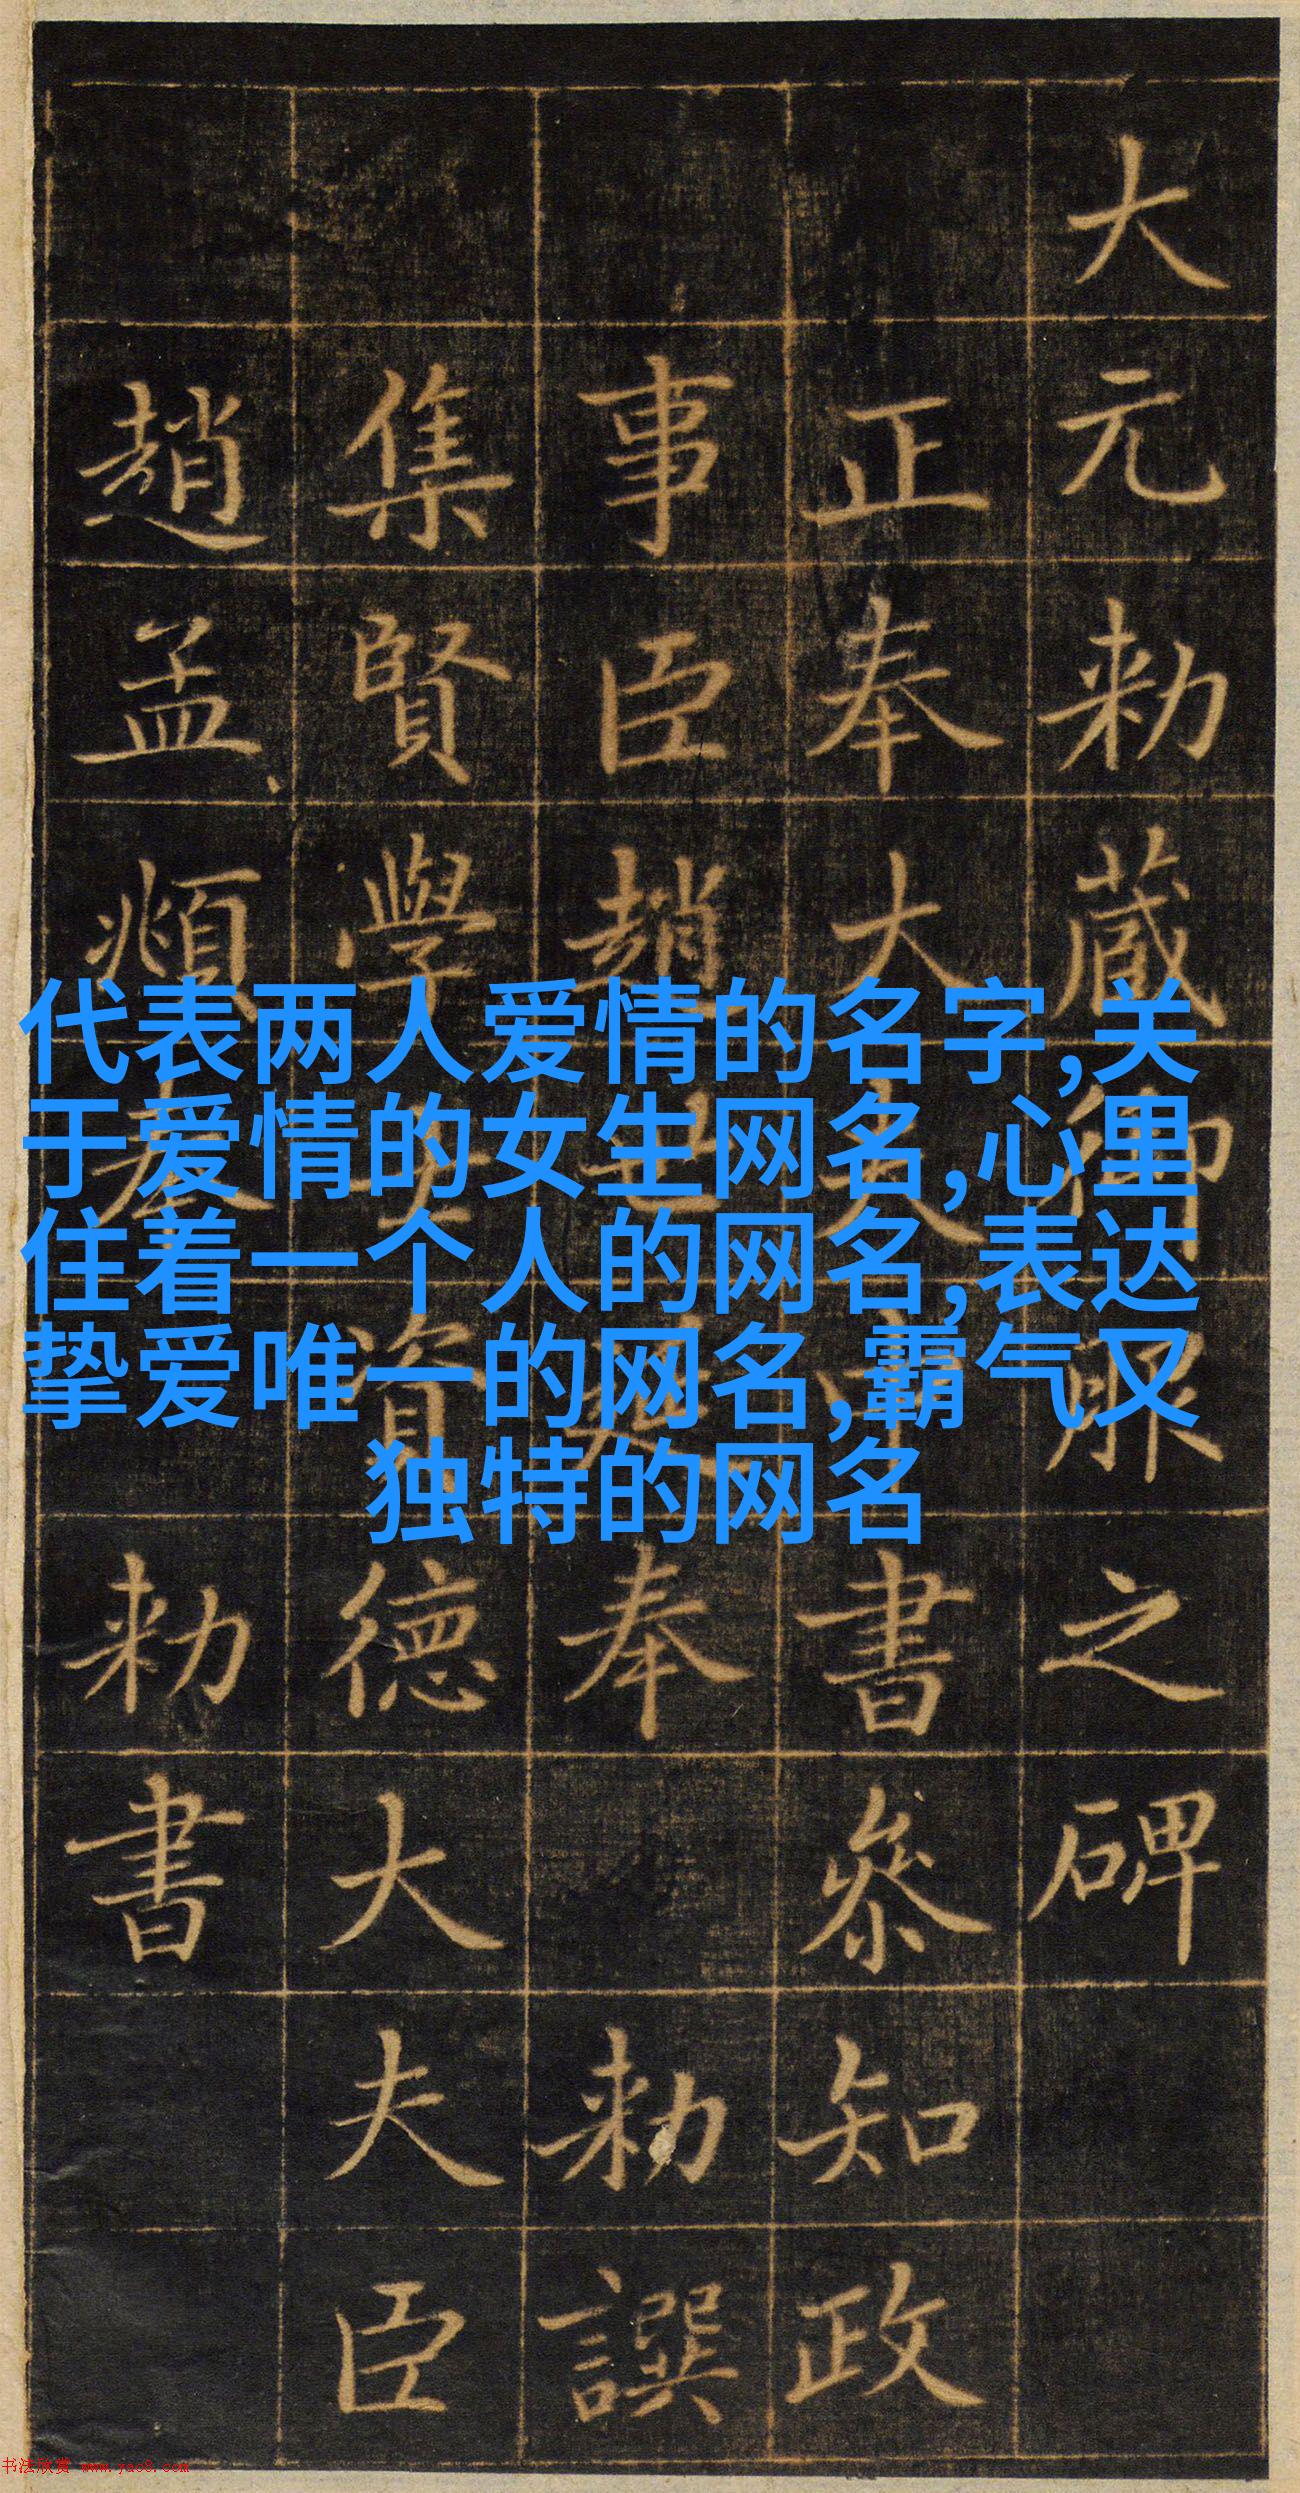 大元勑藏御服之碑
正奉大夫中書叅知政
事臣趙世延奉勑譔
集賢學士資德大夫臣
趙孟頫奉勑書
代表两人爱情的名字,关
于爱情的女生网名,心里
住着一个人的网名,表达
挚爱唯一的网名,霸气又
独特的网名
书法欣赏 www.yac8.com